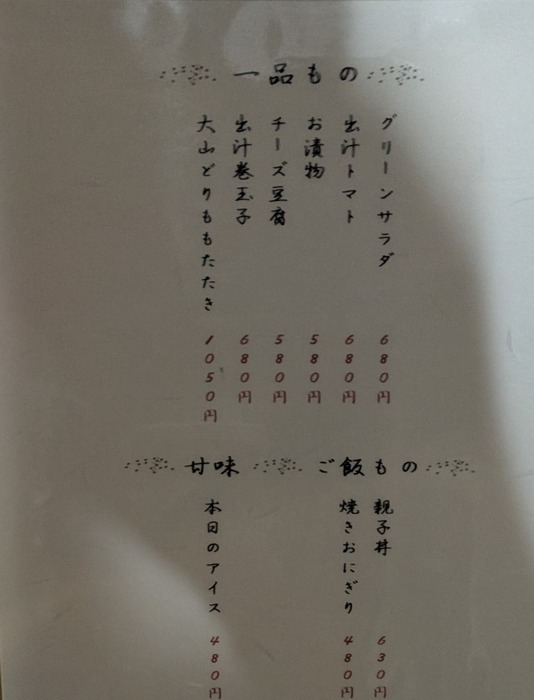 一品もの
グリーンサラダ 680円
出汁トマト 680円
お漬物 580円
チーズ豆腐 580円
出汁巻玉子 680円
大山どりももたたき 1050円
ご飯もの
親子丼 630円
焼きおにぎり 480円
甘味
本日のアイス 480円